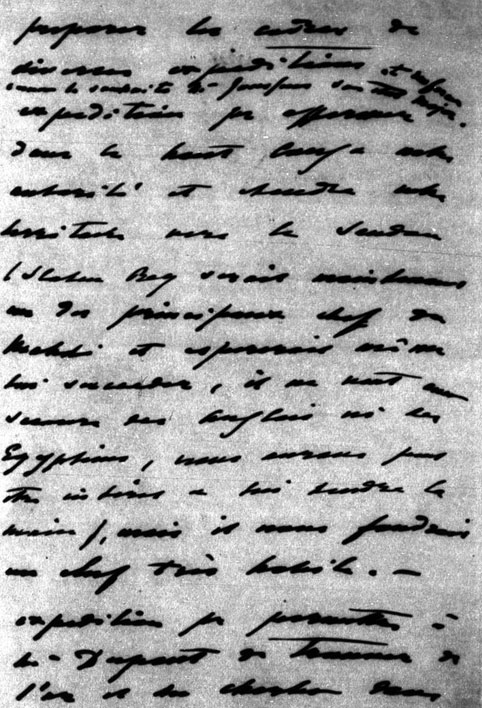 proposer les cadres de
diverses expéditions et
comme le souhaite Mr
expédition pr affermir
dans le haut Congo notre
autorité et étendre notre
territoire vers le Soudan
(Slatin Bey serait maintenant
un des principaux chefs du
Mahdi et espérerait même
lui succéder, il ne veut
des Anglais ni des
Egyptiens, nous aurions peut
être intérêt à lui tendre la
main), mais il nous faudrait
un chef très habile. —
expédition pr permettre à
Mr Dupont de
l'or et de chercher dans